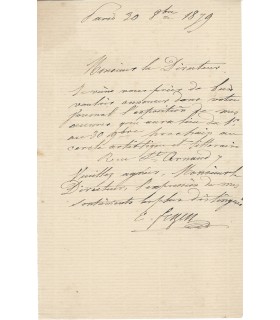 Paris 30 8bre 1879
Monsieur le Directeur
Je viens vous prier de bien
vouloir annoncer dans votre
journal l'exposition de mes
oeuvres qui aura lieu du 1er
au 30 9bre prochain au
cercle artistique et littéraire
Rue St Arnaud 7
Veuillez agréer, Monsieur le
Directeur, l'expression de mes
sentiments les plus distingués
E.